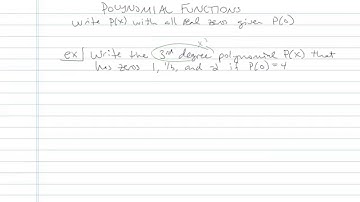 POLYNOMIAL FUNCTIONS
Write P(x) with all real zero given P(0)
x³
ex) Write the 3rd degree polynomial P(x) that
has zeros 1, 1/3, and -2 if P(0)=4